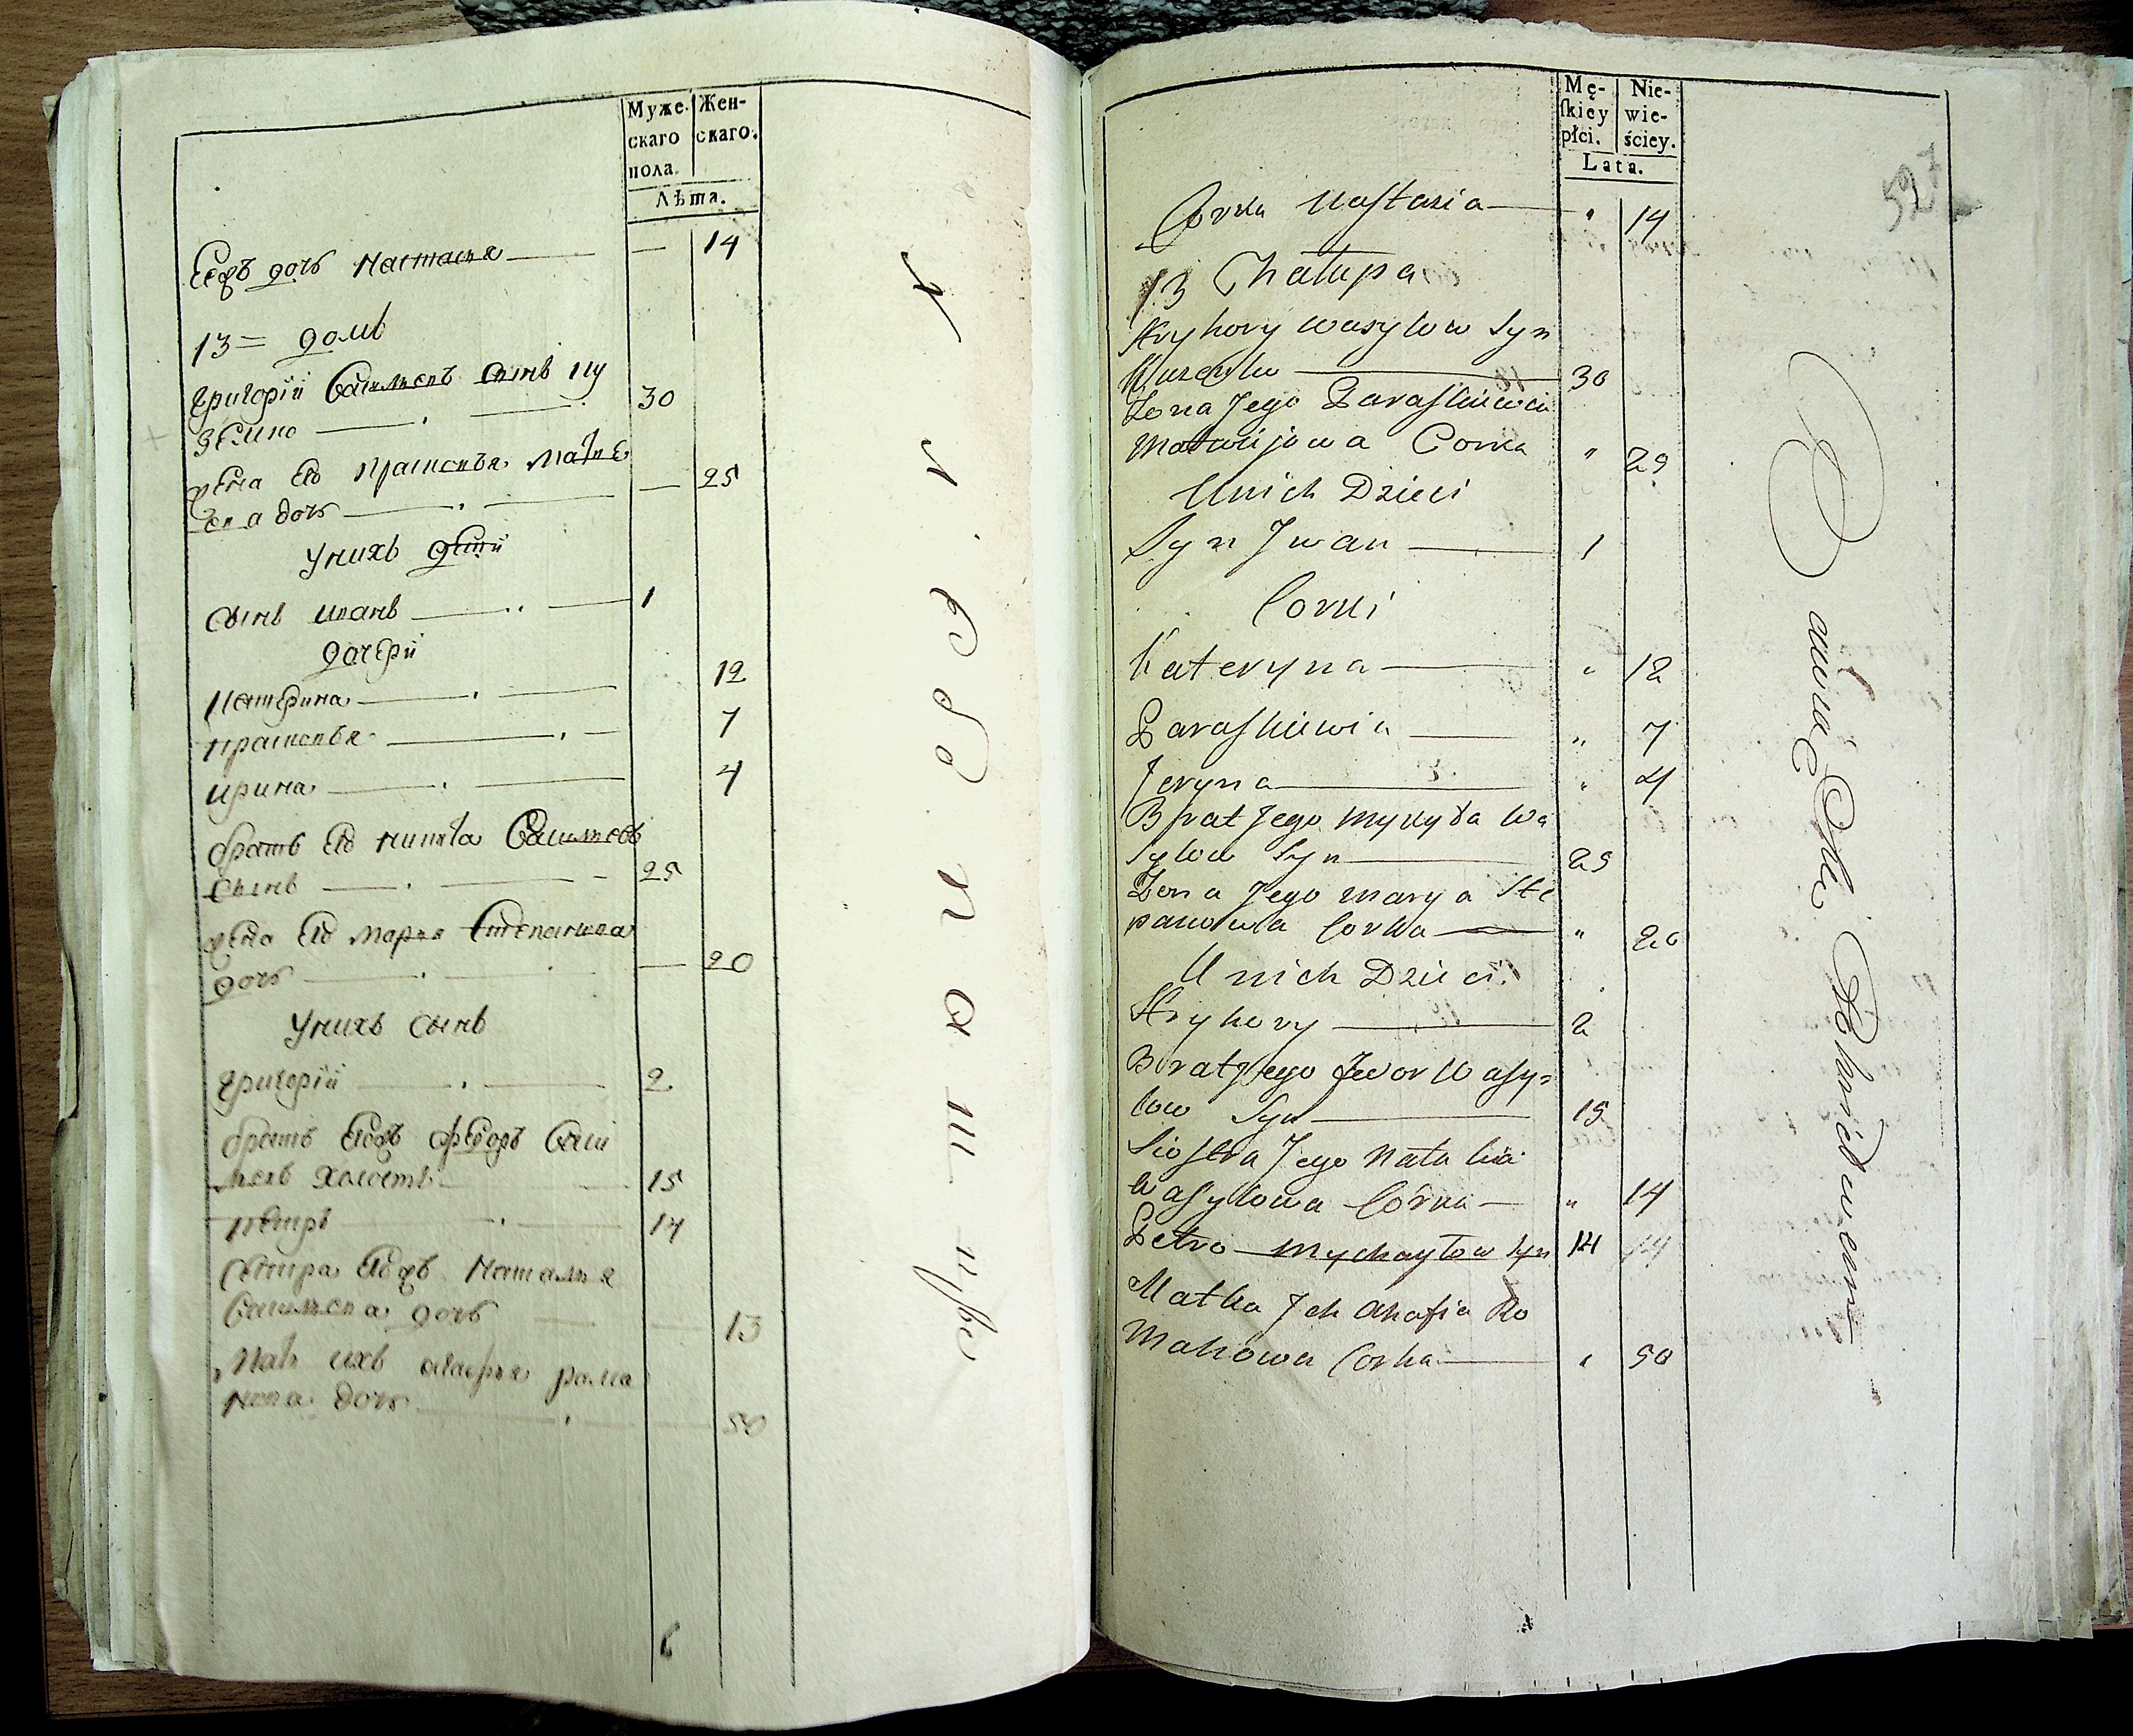 Муже-
скаго
пола.
Жен-
скаго.
Лѣта.
Еговъ дочь Настасья — 14
13 = домъ
Григорій Васильевъ сынъ Ку
земко 30
жена его Прасковья Матве
ева дочь — 25
У нихъ дѣти
сынъ Иванъ 1
дочери
Катерина 12
Прасковья 7
Ирина 4
братъ его Никита Васильевъ
сынъ 25
жена его Марья Степанова
дочь — 20
У нихъ сынъ
Григорій 2
братъ еговъ Федоръ Васи
льевъ холостъ 15
Петръ 14
сестра еговъ Наталья
Васильева дочь 13
Мать ихъ Агафья Рома
нова дочь 50
6
Mę-
ſkiey
płci.
Nie-
wie-
ściey.
Lata.
527
Corka Nastazia " 14
13 Chałupa
Hryhory Wasylow Syn
Kuzemko 30
Zona Jego Paraskiewia
Matwijowa Corka " 25
U nich Dzieci
Syn Jwan 1
Corki
Kateryna " 12
Paraskiewia " 7
Jeryna " 4
Brat Jego Mykyta Wa
sylow Syn 25
Zona Jego Marya Ste
panowa Corka " 20
U nich Dzieci
Hryhory 2
Brat Jego Fedor Wasy=
low Syn 15
Siostra Jego Natalia
Wasylowa Córka " 14
Petro Mychayłow Syn 14
Matka Jch Ahafia Ro
manowa Corka " 50